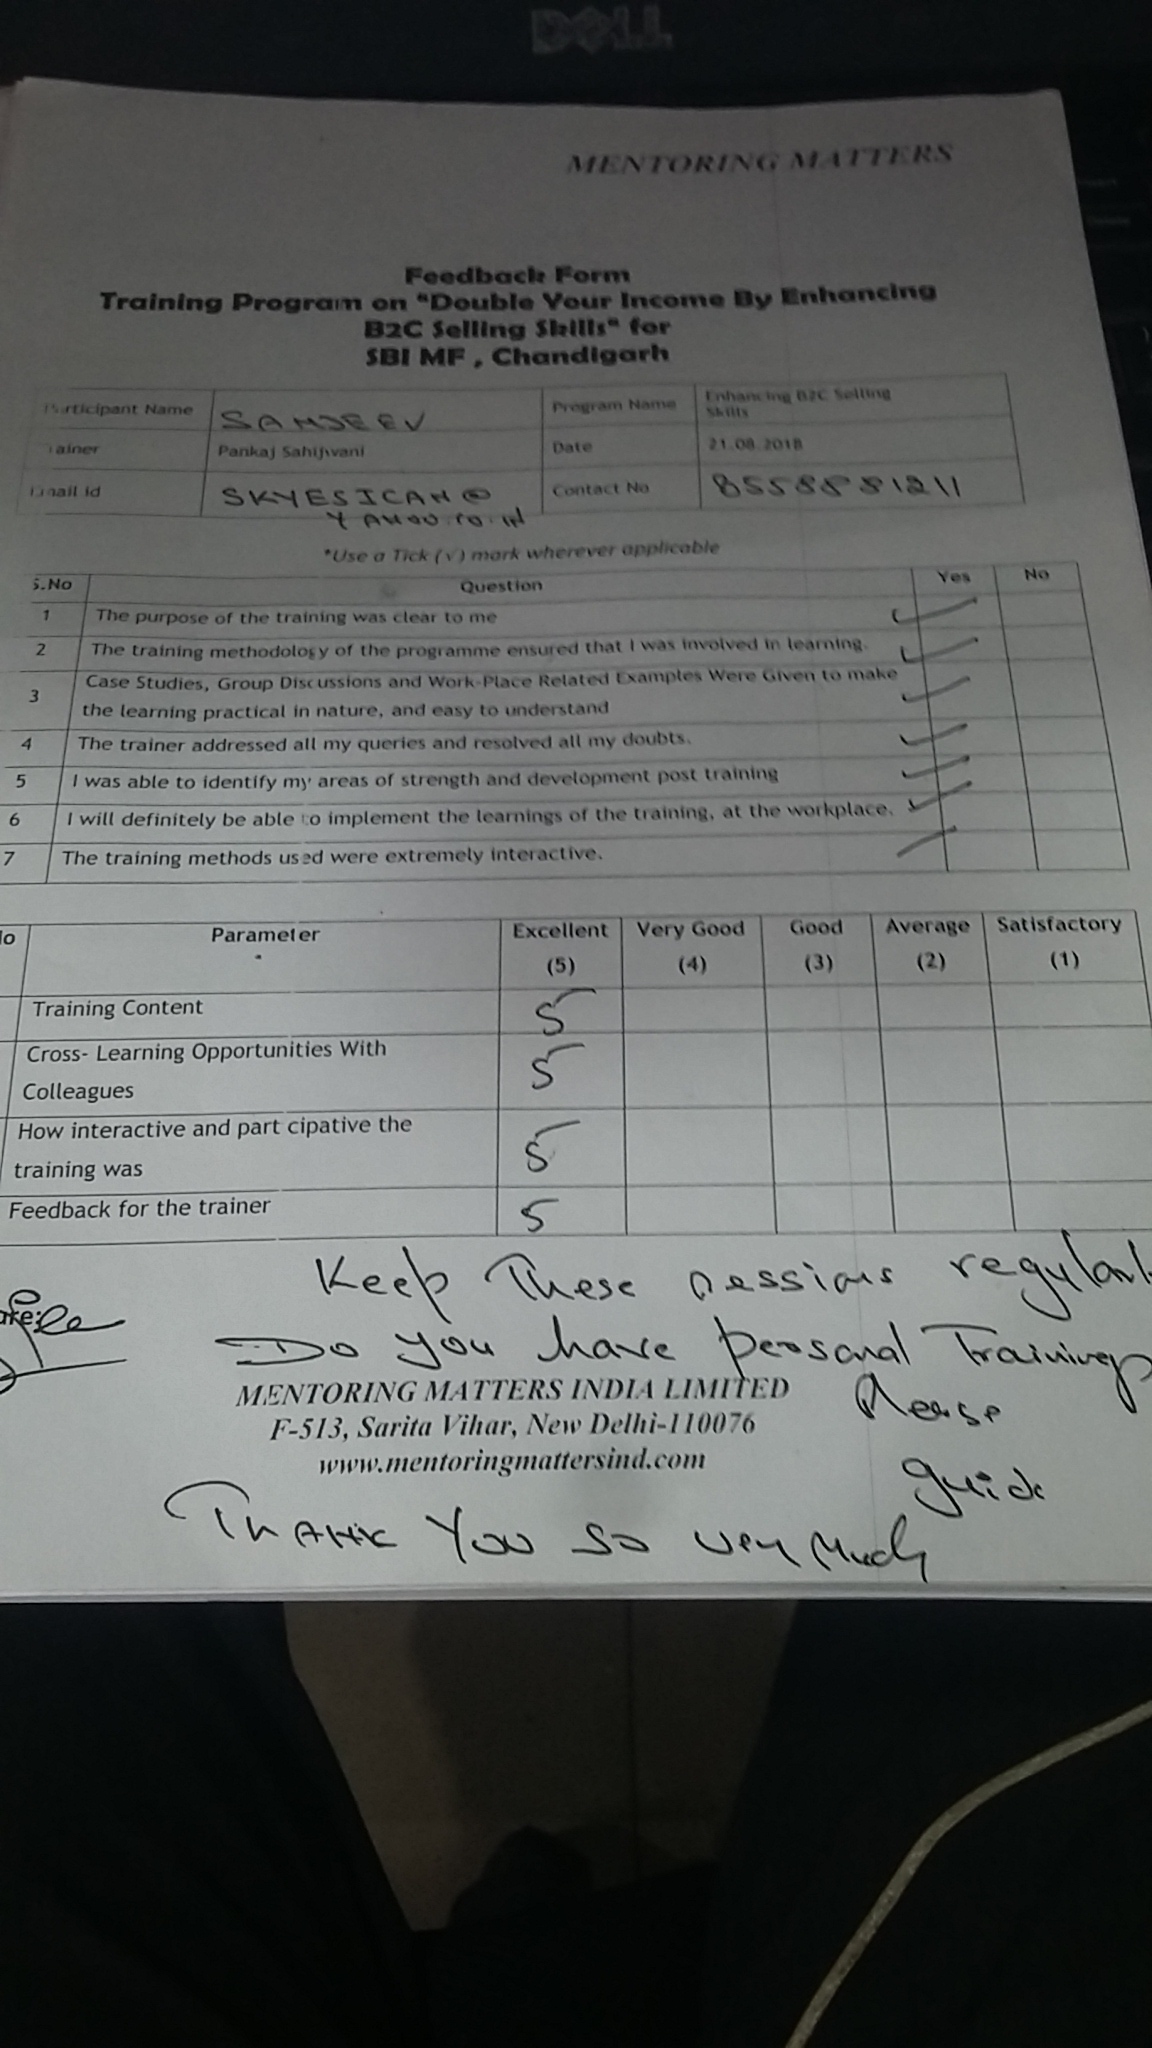 DELL
MENTORING MATTERS
Feedback Form
Training Program on "Double Your Income By Enhancing
B2C Selling Skills" for
SBI MF , Chandigarh
Participant Name SANJEEV Program Name Enhancing B2C Selling
Skills
Trainer Pankaj Sahijwani Date 21.08.2018
Email id SKYESICAN@ Contact No 8558881211
YAHOO.CO.IN
*Use a Tick (√) mark wherever applicable
S.No Question Yes No
1 The purpose of the training was clear to me ✓
2 The training methodology of the programme ensured that I was involved in learning. ✓
3 Case Studies, Group Discussions and Work-Place Related Examples Were Given to make ✓
the learning practical in nature, and easy to understand
4 The trainer addressed all my queries and resolved all my doubts. ✓
5 I was able to identify my areas of strength and development post training ✓
6 I will definitely be able to implement the learnings of the training, at the workplace. ✓
7 The training methods used were extremely interactive.
No Parameter Excellent Very Good Good Average Satisfactory
(5) (4) (3) (2) (1)
Training Content 5
Cross- Learning Opportunities With 5
Colleagues
How interactive and part cipative the 5
training was
Feedback for the trainer 5
Keep These sessions
Do you have personal Trainings
Please
guide
MENTORING MATTERS INDIA LIMITED
F-513, Sarita Vihar, New Delhi-110076
www.mentoringmattersind.com
THANK YOU SO very Much